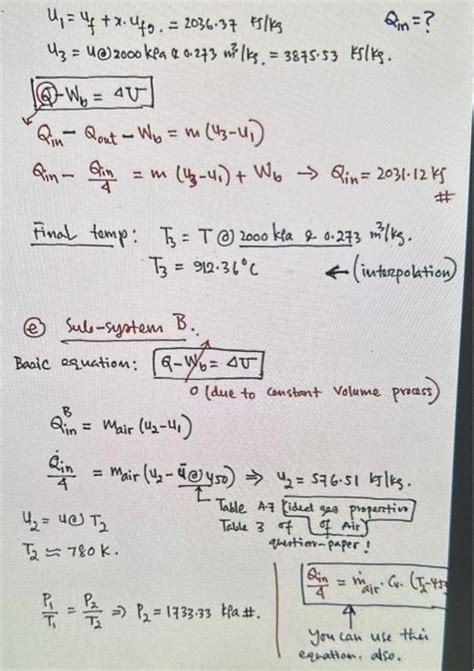 u₁ = u_f + x. u_fg. = 2036.37 kJ/kg
Q_in = ?
u₃ = u@2000 kPa & 0.273 m³/kg. = 3875.53 kJ/kg.
Q - W_b = ΔU
Q_in - Q_out - W_b = m (u₃-u₁)
Q_in - Q_in/4 = m (u₃-u₁) + W_b → Q_in = 2031.12 kJ #
Final temp: T₃ = T @ 2000 kPa & 0.273 m³/kg.
T₃ = 912.36°C ← (interpolation)
(e) Sub-system B.
Basic equation: Q - W_b = ΔU
0 (due to constant volume process)
Q_in^B = m_air (u₂-u₁)
Q_in/4 = m_air (u₂ - u@450) ⇒ u₂ = 576.51 kJ/kg.
Table A-7 (ideal gas properties
Table 3 of of Air)
question-paper!
u₂ = u@T₂
T₂ ≈ 780 K.
P₁/T₁ = P₂/T₂ ⇒ P₂ = 1733.33 kPa #.
Q_in/4 = m_air . C_v. (T₂-450
You can use this
equation. also.